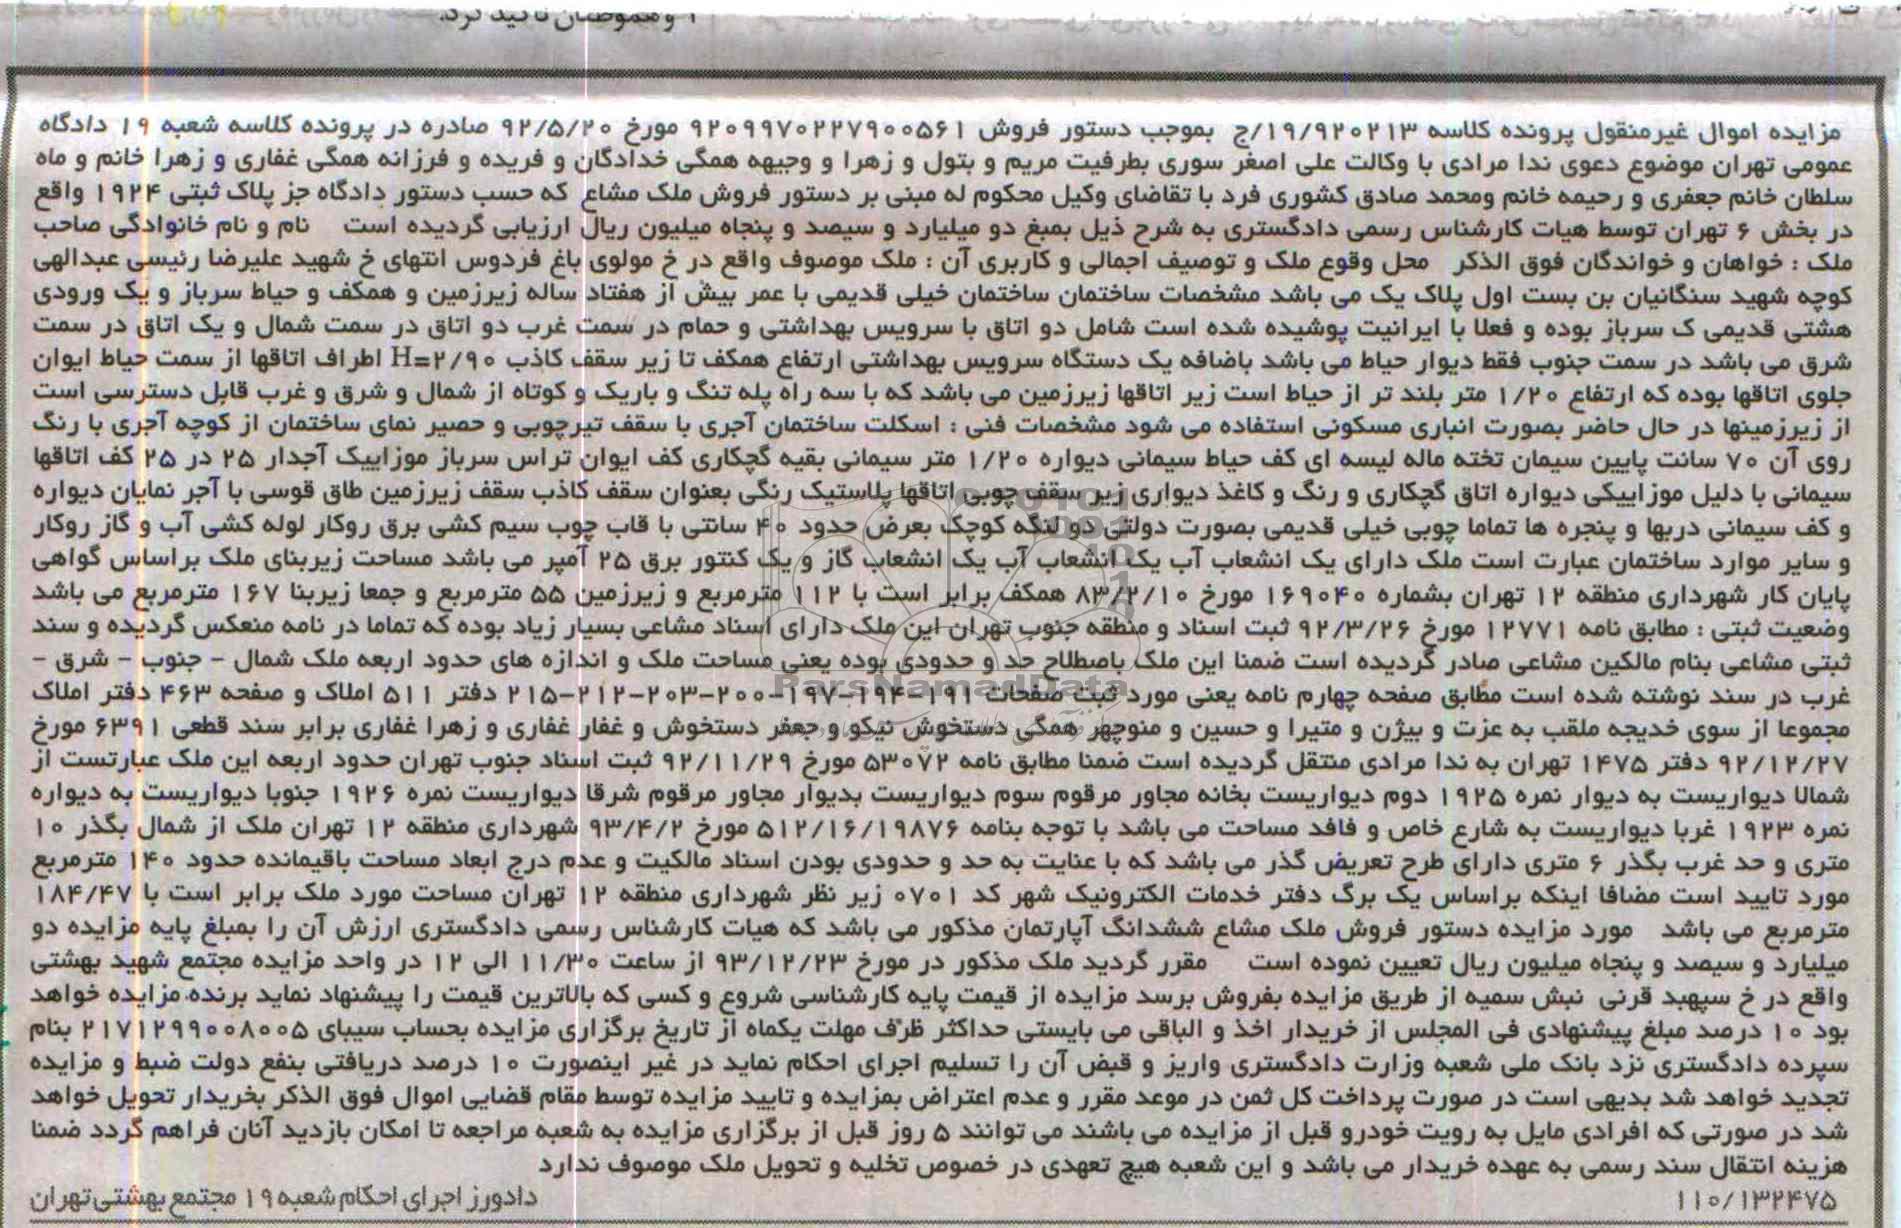 و هموطنان تاکید کرد.
مزایده اموال غیرمنقول پرونده کلاسه ۱۹/۹۲۰۲۱۳/ج بموجب دستور فروش ۹۲۰۹۹۷۰۲۲۷۹۰۰۵۶۱ مورخ ۹۲/۵/۲۰ صادره در پرونده کلاسه شعبه ۱۹ دادگاه
عمومی تهران موضوع دعوی ندا مرادی با وکالت علی اصغر سوری بطرفیت مریم و بتول و زهرا و وجیهه همگی خدادگان و فریده و فرزانه همگی غفاری و زهرا خانم و ماه
سلطان خانم جعفری و رحیمه خانم ومحمد صادق کشوری فرد با تقاضای وکیل محکوم له مبنی بر دستور فروش ملک مشاع که حسب دستور دادگاه جز پلاک ثبتی ۱۹۲۴ واقع
در بخش ۶ تهران توسط هیات کارشناس رسمی دادگستری به شرح ذیل بمبغ دو میلیارد و سیصد و پنجاه میلیون ریال ارزیابی گردیده است نام و نام خانوادگی صاحب
ملک : خواهان و خواندگان فوق الذکر محل وقوع ملک و توصیف اجمالی و کاربری آن : ملک موصوف واقع در خ مولوی باغ فردوس انتهای خ شهید علیرضا رئیسی عبدالهی
کوچه شهید سنگانیان بن بست اول پلاک یک می باشد مشخصات ساختمان ساختمان خیلی قدیمی با عمر بیش از هفتاد ساله زیرزمین و همکف و حیاط سرباز و یک ورودی
هشتی قدیمی ک سرباز بوده و فعلا با ایرانیت پوشیده شده است شامل دو اتاق با سرویس بهداشتی و حمام در سمت غرب دو اتاق در سمت شمال و یک اتاق در سمت
شرق می باشد در سمت جنوب فقط دیوار حیاط می باشد باضافه یک دستگاه سرویس بهداشتی ارتفاع همکف تا زیر سقف کاذب H=۲/۹۰ اطراف اتاقها از سمت حیاط ایوان
جلوی اتاقها بوده که ارتفاع ۱/۲۰ متر بلند تر از حیاط است زیر اتاقها زیرزمین می باشد که با سه راه پله تنگ و باریک و کوتاه از شمال و شرق و غرب قابل دسترسی است
از زیرزمینها در حال حاضر بصورت انباری مسکونی استفاده می شود مشخصات فنی : اسکلت ساختمان آجری با سقف تیرچوبی و حصیر نمای ساختمان از کوچه آجری با رنگ
روی آن ۷۰ سانت پایین سیمان تخته ماله لیسه ای کف حیاط سیمانی دیواره ۱/۲۰ متر سیمانی بقیه گچکاری کف ایوان تراس سرباز موزاییک آجدار ۲۵ در ۲۵ کف اتاقها
سیمانی با دلیل موزاییکی دیواره اتاق گچکاری و رنگ و کاغذ دیواری زیر سقف چوبی اتاقها پلاستیک رنگی بعنوان سقف کاذب سقف زیرزمین طاق قوسی با آجر نمایان دیواره
و کف سیمانی دربها و پنجره ها تماما چوبی خیلی قدیمی بصورت دولتی دو لنگه کوچک بعرض حدود ۴۰ سانتی با قاب چوب سیم کشی برق روکار لوله کشی آب و گاز روکار
و سایر موارد ساختمان عبارت است ملک دارای یک انشعاب آب یک انشعاب آب یک انشعاب گاز و یک کنتور برق ۲۵ آمپر می باشد مساحت زیربنای ملک براساس گواهی
پایان کار شهرداری منطقه ۱۲ تهران بشماره ۱۶۹۰۴۰ مورخ ۸۳/۲/۱۰ همکف برابر است با ۱۱۲ مترمربع و زیرزمین ۵۵ مترمربع و جمعا زیربنا ۱۶۷ مترمربع می باشد
وضعیت ثبتی : مطابق نامه ۱۲۷۷۱ مورخ ۹۲/۳/۲۶ ثبت اسناد و منطقه جنوب تهران این ملک دارای اسناد مشاعی بسیار زیاد بوده که تماما در نامه منعکس گردیده و سند
ثبتی مشاعی بنام مالکین مشاعی صادر گردیده است ضمنا این ملک باصطلاح حد و حدودی بوده یعنی مساحت ملک و اندازه های حدود اربعه ملک شمال - جنوب - شرق -
غرب در سند نوشته شده است مطابق صفحه چهارم نامه یعنی مورد ثبت صفحات ۱۹۱-۱۹۴-۱۹۷-۲۰۰-۲۰۳-۲۱۲-۲۱۵ دفتر ۵۱۱ املاک و صفحه ۴۶۳ دفتر املاک
مجموعا از سوی خدیجه ملقب به عزت و بیژن و متیرا و حسین و منوچهر همگی دستخوش نیکو و جعفر دستخوش و غفار غفاری و زهرا غفاری برابر سند قطعی ۶۳۹۱ مورخ
۹۲/۱۲/۲۷ دفتر ۱۴۷۵ تهران به ندا مرادی منتقل گردیده است ضمنا مطابق نامه ۵۳۰۷۲ مورخ ۹۲/۱۱/۲۹ ثبت اسناد جنوب تهران حدود اربعه این ملک عبارتست از
شمالا دیواریست به دیوار نمره ۱۹۲۵ دوم دیواریست بخانه مجاور مرقوم سوم دیواریست بدیوار مجاور مرقوم شرقا دیواریست نمره ۱۹۲۶ جنوبا دیواریست به دیواره
نمره ۱۹۲۳ غربا دیواریست به شارع خاص و فاقد مساحت می باشد با توجه بنامه ۵۱۲/۱۶/۱۹۸۷۶ مورخ ۹۳/۴/۲ شهرداری منطقه ۱۲ تهران ملک از شمال بگذر ۱۰
متری و حد غرب بگذر ۶ متری دارای طرح تعریض گذر می باشد که با عنایت به حد و حدودی بودن اسناد مالکیت و عدم درج ابعاد مساحت باقیمانده حدود ۱۴۰ مترمربع
مورد تایید است مضافا اینکه براساس یک برگ دفتر خدمات الکترونیک شهر کد ۰۷۰۱ زیر نظر شهرداری منطقه ۱۲ تهران مساحت مورد ملک برابر است با ۱۸۴/۴۷
مترمربع می باشد مورد مزایده دستور فروش ملک مشاع ششدانگ آپارتمان مذکور می باشد که هیات کارشناس رسمی دادگستری ارزش آن را بمبلغ پایه مزایده دو
میلیارد و سیصد و پنجاه میلیون ریال تعیین نموده است مقرر گردید ملک مذکور در مورخ ۹۳/۱۲/۲۳ از ساعت ۱۱/۳۰ الی ۱۲ در واحد مزایده مجتمع شهید بهشتی
واقع در خ سپهبد قرنی نبش سمیه از طریق مزایده بفروش برسد مزایده از قیمت پایه کارشناسی شروع و کسی که بالاترین قیمت را پیشنهاد نماید برنده مزایده خواهد
بود ۱۰ درصد مبلغ پیشنهادی فی المجلس از خریدار اخذ و الباقی می بایستی حداکثر ظرف مهلت یکماه از تاریخ برگزاری مزایده بحساب سیبای ۲۱۷۱۲۹۹۰۰۸۰۰۵ بنام
سپرده دادگستری نزد بانک ملی شعبه وزارت دادگستری واریز و قبض آن را تسلیم اجرای احکام نماید در غیر اینصورت ۱۰ درصد دریافتی بنفع دولت ضبط و مزایده
تجدید خواهد شد بدیهی است در صورت پرداخت کل ثمن در موعد مقرر و عدم اعتراض بمزایده و تایید مزایده توسط مقام قضایی اموال فوق الذکر بخریدار تحویل خواهد
شد در صورتی که افرادی مایل به رویت خودرو قبل از مزایده می باشند می توانند ۵ روز قبل از برگزاری مزایده به شعبه مراجعه تا امکان بازدید آنان فراهم گردد ضمنا
هزینه انتقال سند رسمی به عهده خریدار می باشد و این شعبه هیچ تعهدی در خصوص تخلیه و تحویل ملک موصوف ندارد
۱۱۰/۱۳۲۴۷۵ دادورز اجرای احکام شعبه ۱۹ مجتمع بهشتی تهران
ParsNamadData